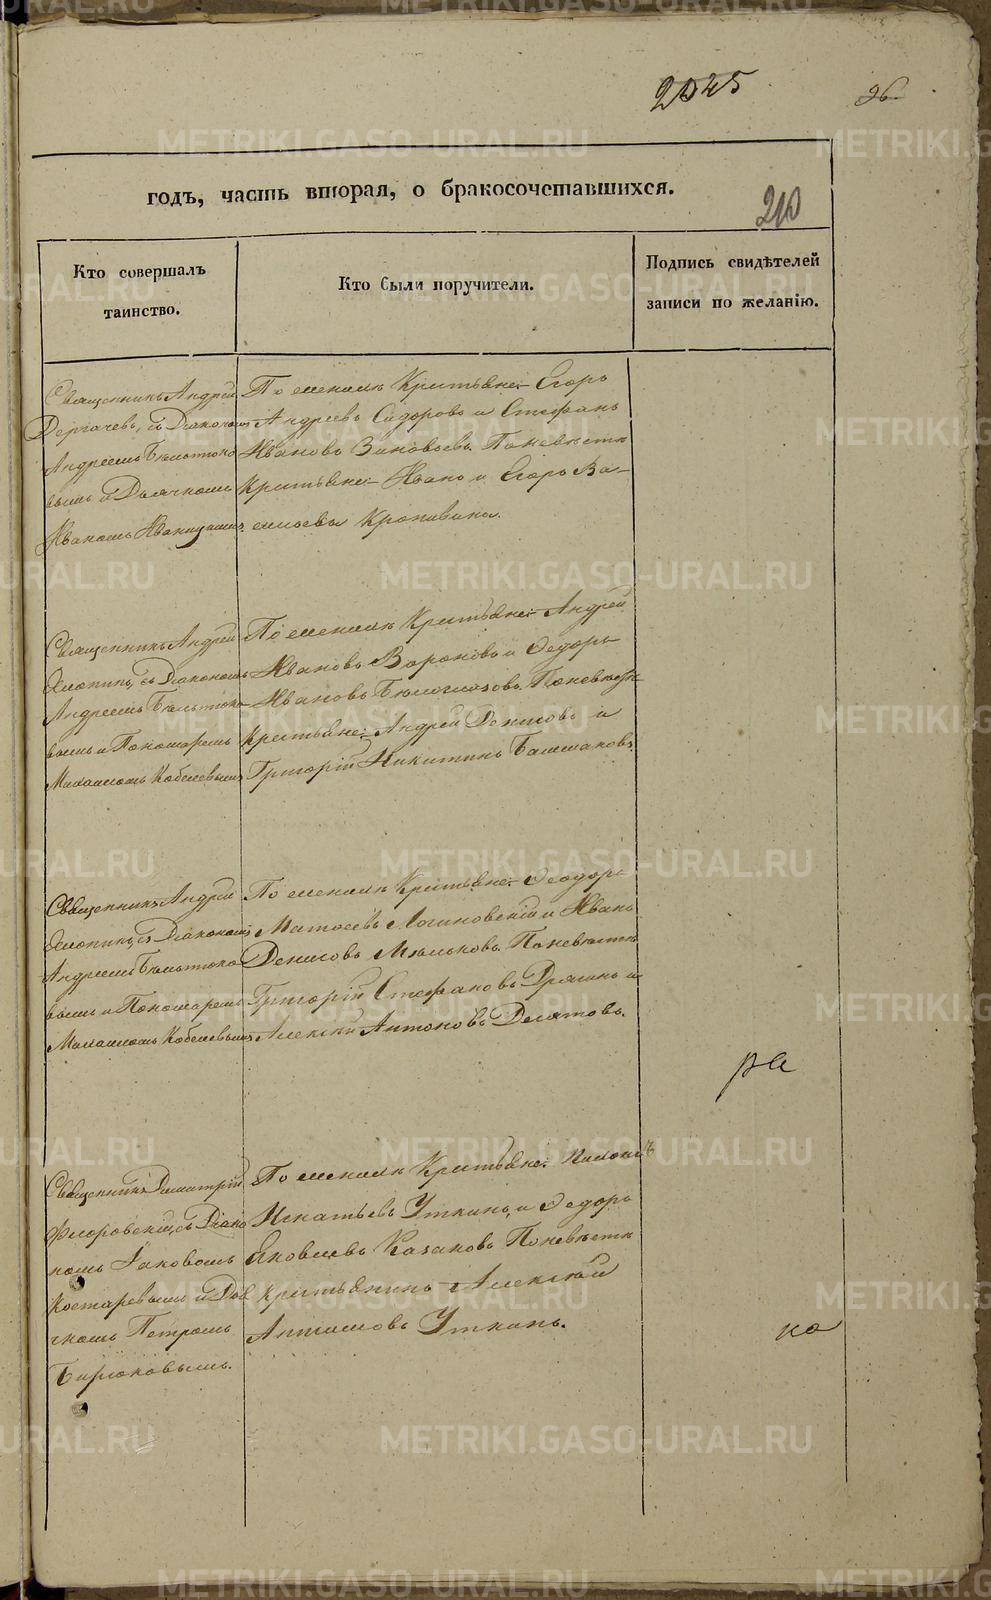 2045
26
годъ, часть вторая, о бракосочетавшихся.
210
Кто совершалъ
таинство.
Кто были поручители.
Подпись свидѣтелей
записи по желанію.
Священникъ Андрей
Дергачевъ, съ Діакономъ
Андреемъ Бѣльтюко
вымъ и Дьячкомъ
Иваномъ
По женихѣ Крестьяне: Егоръ
Андреевъ Сидоровъ и Стефанъ
Ивановъ Зиновьевъ. По невѣстѣ
Крестьяне: Иванъ и Егоръ Ва-
сильевы Кропивины.
Священникъ Андрей
Хлопинъ, съ Діакономъ
Андреемъ Бѣльтюко
вымъ и Пономаремъ
Михаиломъ Кобелевымъ
По женихѣ Крестьяне: Андрей
Ивановъ Вороновъ и Федоръ
Ивановъ Бѣлоглазовъ. По невѣстѣ
Крестьяне: Андрей Денисовъ и
Григорій Никитинъ Башмаковъ.
Священникъ Андрей
Хлопинъ, съ Діакономъ
Андреемъ Бѣльтюко
вымъ и Пономаремъ
Михаиломъ Кобелевымъ
По женихѣ Крестьяне: Феодоръ
Матвеевъ Логиновскій и Иванъ
Денисовъ Мѣльковъ. По невѣстѣ
Григорій Стефановъ Дрягинъ и
Алексѣй Антоновъ Десятовъ.
ра
Священникъ Димитрій
Флоровскій, съ Діако
номъ Іаковомъ
Костаревымъ и Дья
чкомъ Петромъ
Бирюковымъ.
По женихѣ Крестьяне:
Игнатьевъ Уткинъ, и Федоръ
Яковлевъ Казаковъ. По невѣстѣ
крестьянинъ Алексѣй
Уткинъ.
ка
METRIKI.GASO-URAL.RU